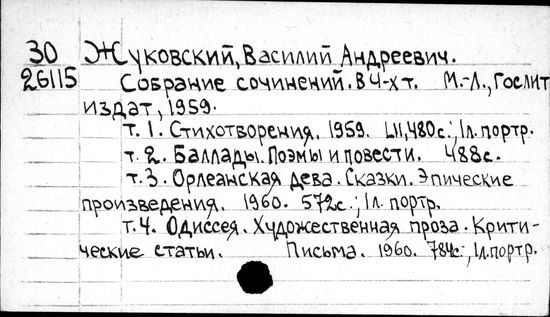 30 Жуковский, Василий Андреевич.
26115 Собрание сочинений. В 4-х т. М.-Л., Гослит
издат, 1959.
т. 1. Стихотворения. 1959. LII, 480 с.; 1 л. портр.
т. 2. Баллады. Поэмы и повести. 488 с.
т. 3. Орлеанская дева. Сказки. Эпические
произведения. 1960. 572 с.; 1 л. портр.
т. 4. Одиссея. Художественная проза. Крити-
ческие статьи. Письма. 1960. 784 с.; 1 л. портр.